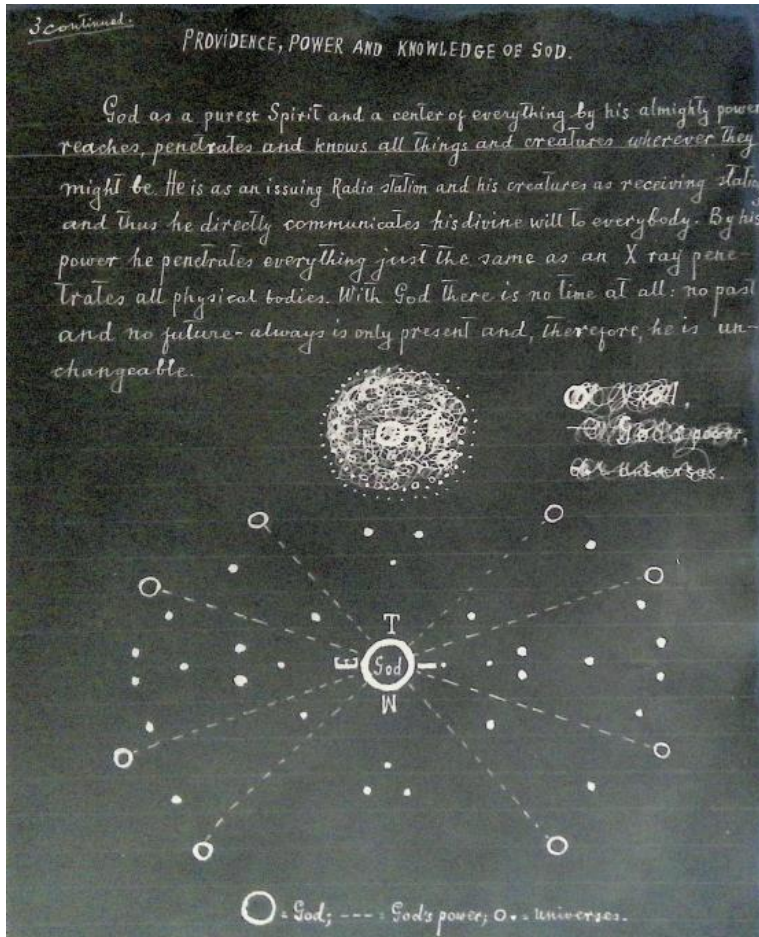 3 continued.
PROVIDENCE, POWER AND KNOWLEDGE OF GOD.
God as a purest Spirit and a center of everything by his almighty power
reaches, penetrates and knows all things and creatures wherever they
might be. He is as an issuing Radio station and his creatures as receiving statio
and thus he directly communicates his divine will to everybody. By his
power he penetrates everything just the same as an X ray pene-
trates all physical bodies. With God there is no time at all: no past
and no future - always is only present and, therefore, he is un-
changeable.
God's power,
universes.
T
E God I
M
= God; --- = God's power; O • = universes.